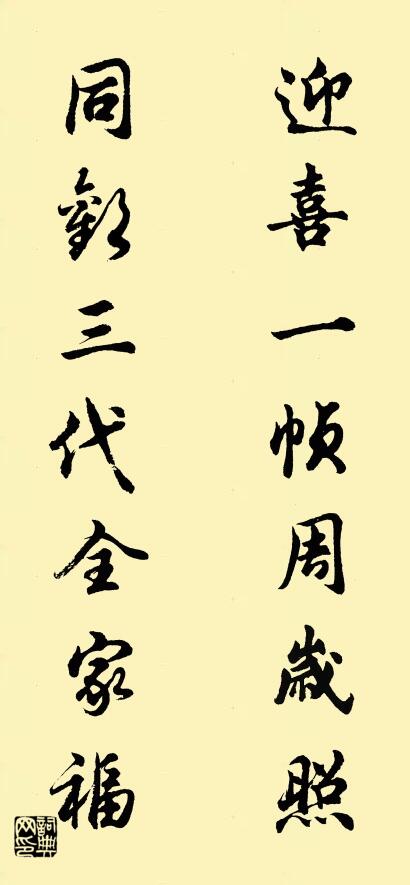 迎喜一帧周歲照
同歡三代全家福
詞典网印